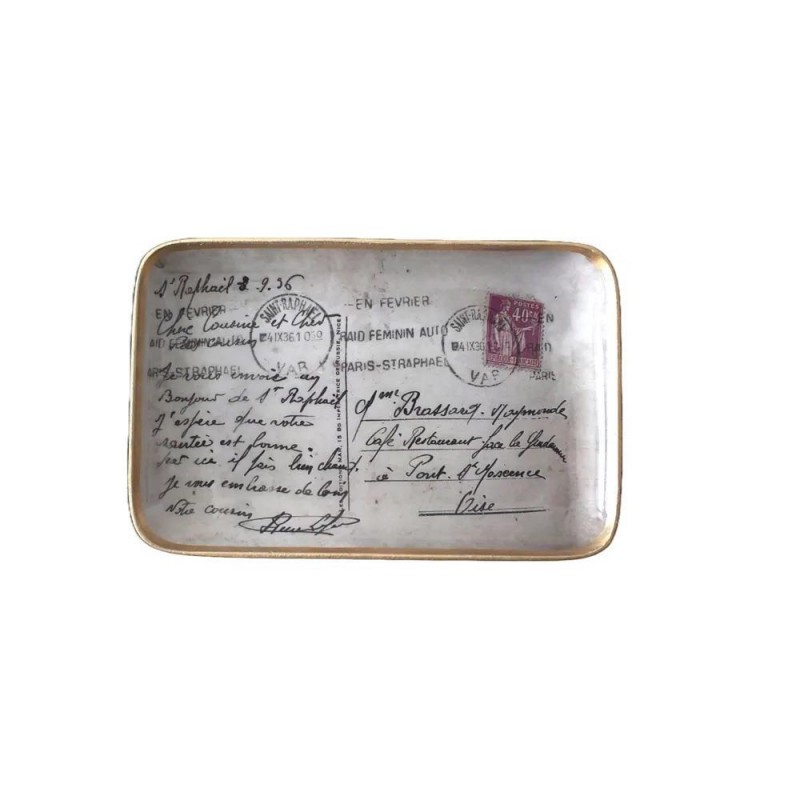 St Raphaël 3.9.36
EN FÉVRIER
Chère Cousine et Cher
RAID FEMININ AUTO
Cousin
PARIS-STRAPHAEL
Je vous envoie un
Bonjour de St Raphaël
J'espère que votre
santée est bonne.
ici il fais bien chaud.
je vous embrasse de loin
votre cousin
SAINT-RAPHAEL
4 IX 36
VAR
EN FEVRIER
RAID FEMININ AUTO
PARIS-STRAPHAEL
SAINT-RAPHAEL
4 IX 36
VAR
POSTES
40c
EN
RAID
PARIS
Mme Brassart Raymonde
Café Restaurant face la
à Pont Ste Maxence
Oise